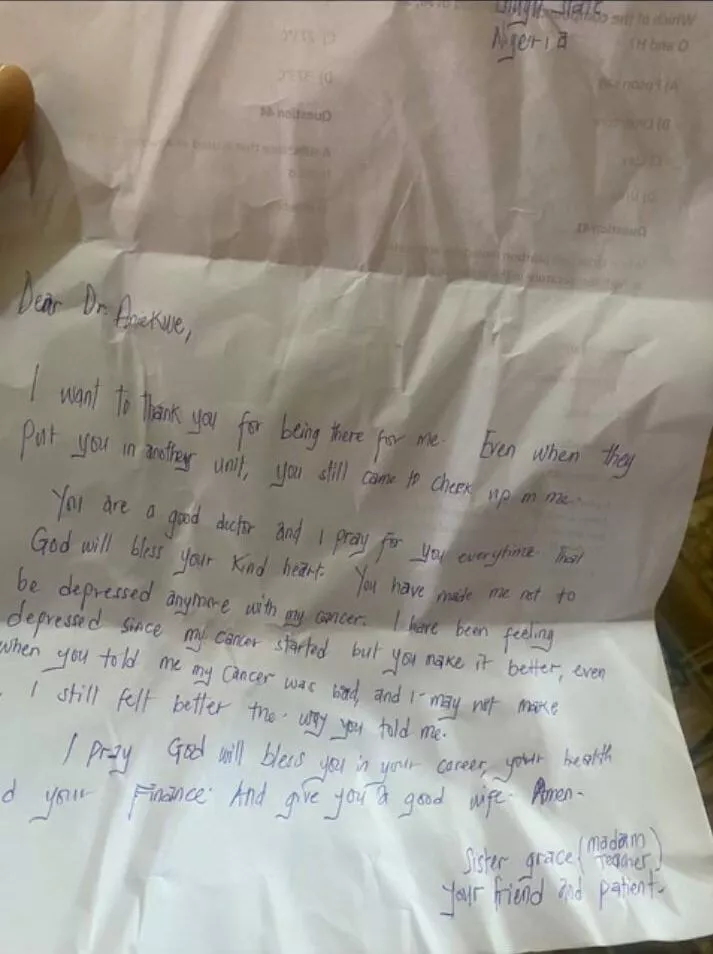 Nigeria
Dear Dr. Anekwe,
I want to thank you for being there for me. Even when they
put you in another unit, you still came to check up on me.
You are a good doctor and I pray for you everytime. That
God will bless your kind heart. You have made me not to
be depressed anymore with my cancer. I have been feeling
depressed since my cancer started but you make it better, even
when you told me my cancer was bad, and I may not make
. I still felt better the way you told me.
I pray God will bless you in your career, your health
d your Finance. And give you a good wife. Amen.
Sister grace (madam
teacher)
your friend and patient.
Question 44
Question 41